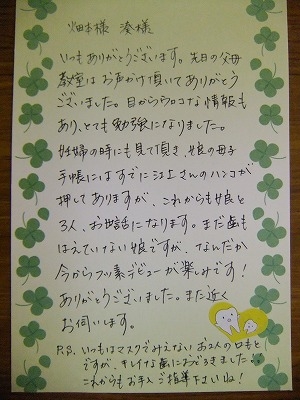 畑本様 湊様
いつもありがとうございます。先日の父母
教室はお声がけ頂いてありがとう
ございました。目からウロコな情報も
あり、とても勉強になりました。
妊婦の時にも見て頂き、娘の母子
手帳にはすでに江上さんのハンコが
押してありますが、これからも娘と
3人、お世話になります。まだ歯も
はえていない娘ですが、なんだか
今からフッ素デビューが楽しみです!
ありがとうございました。また近く
お伺いします。
P.S. いつもはマスクでみえないお2人の口もと
ですが、キレイな歯におどろきました!!
これからもお手入ご指導下さいね!